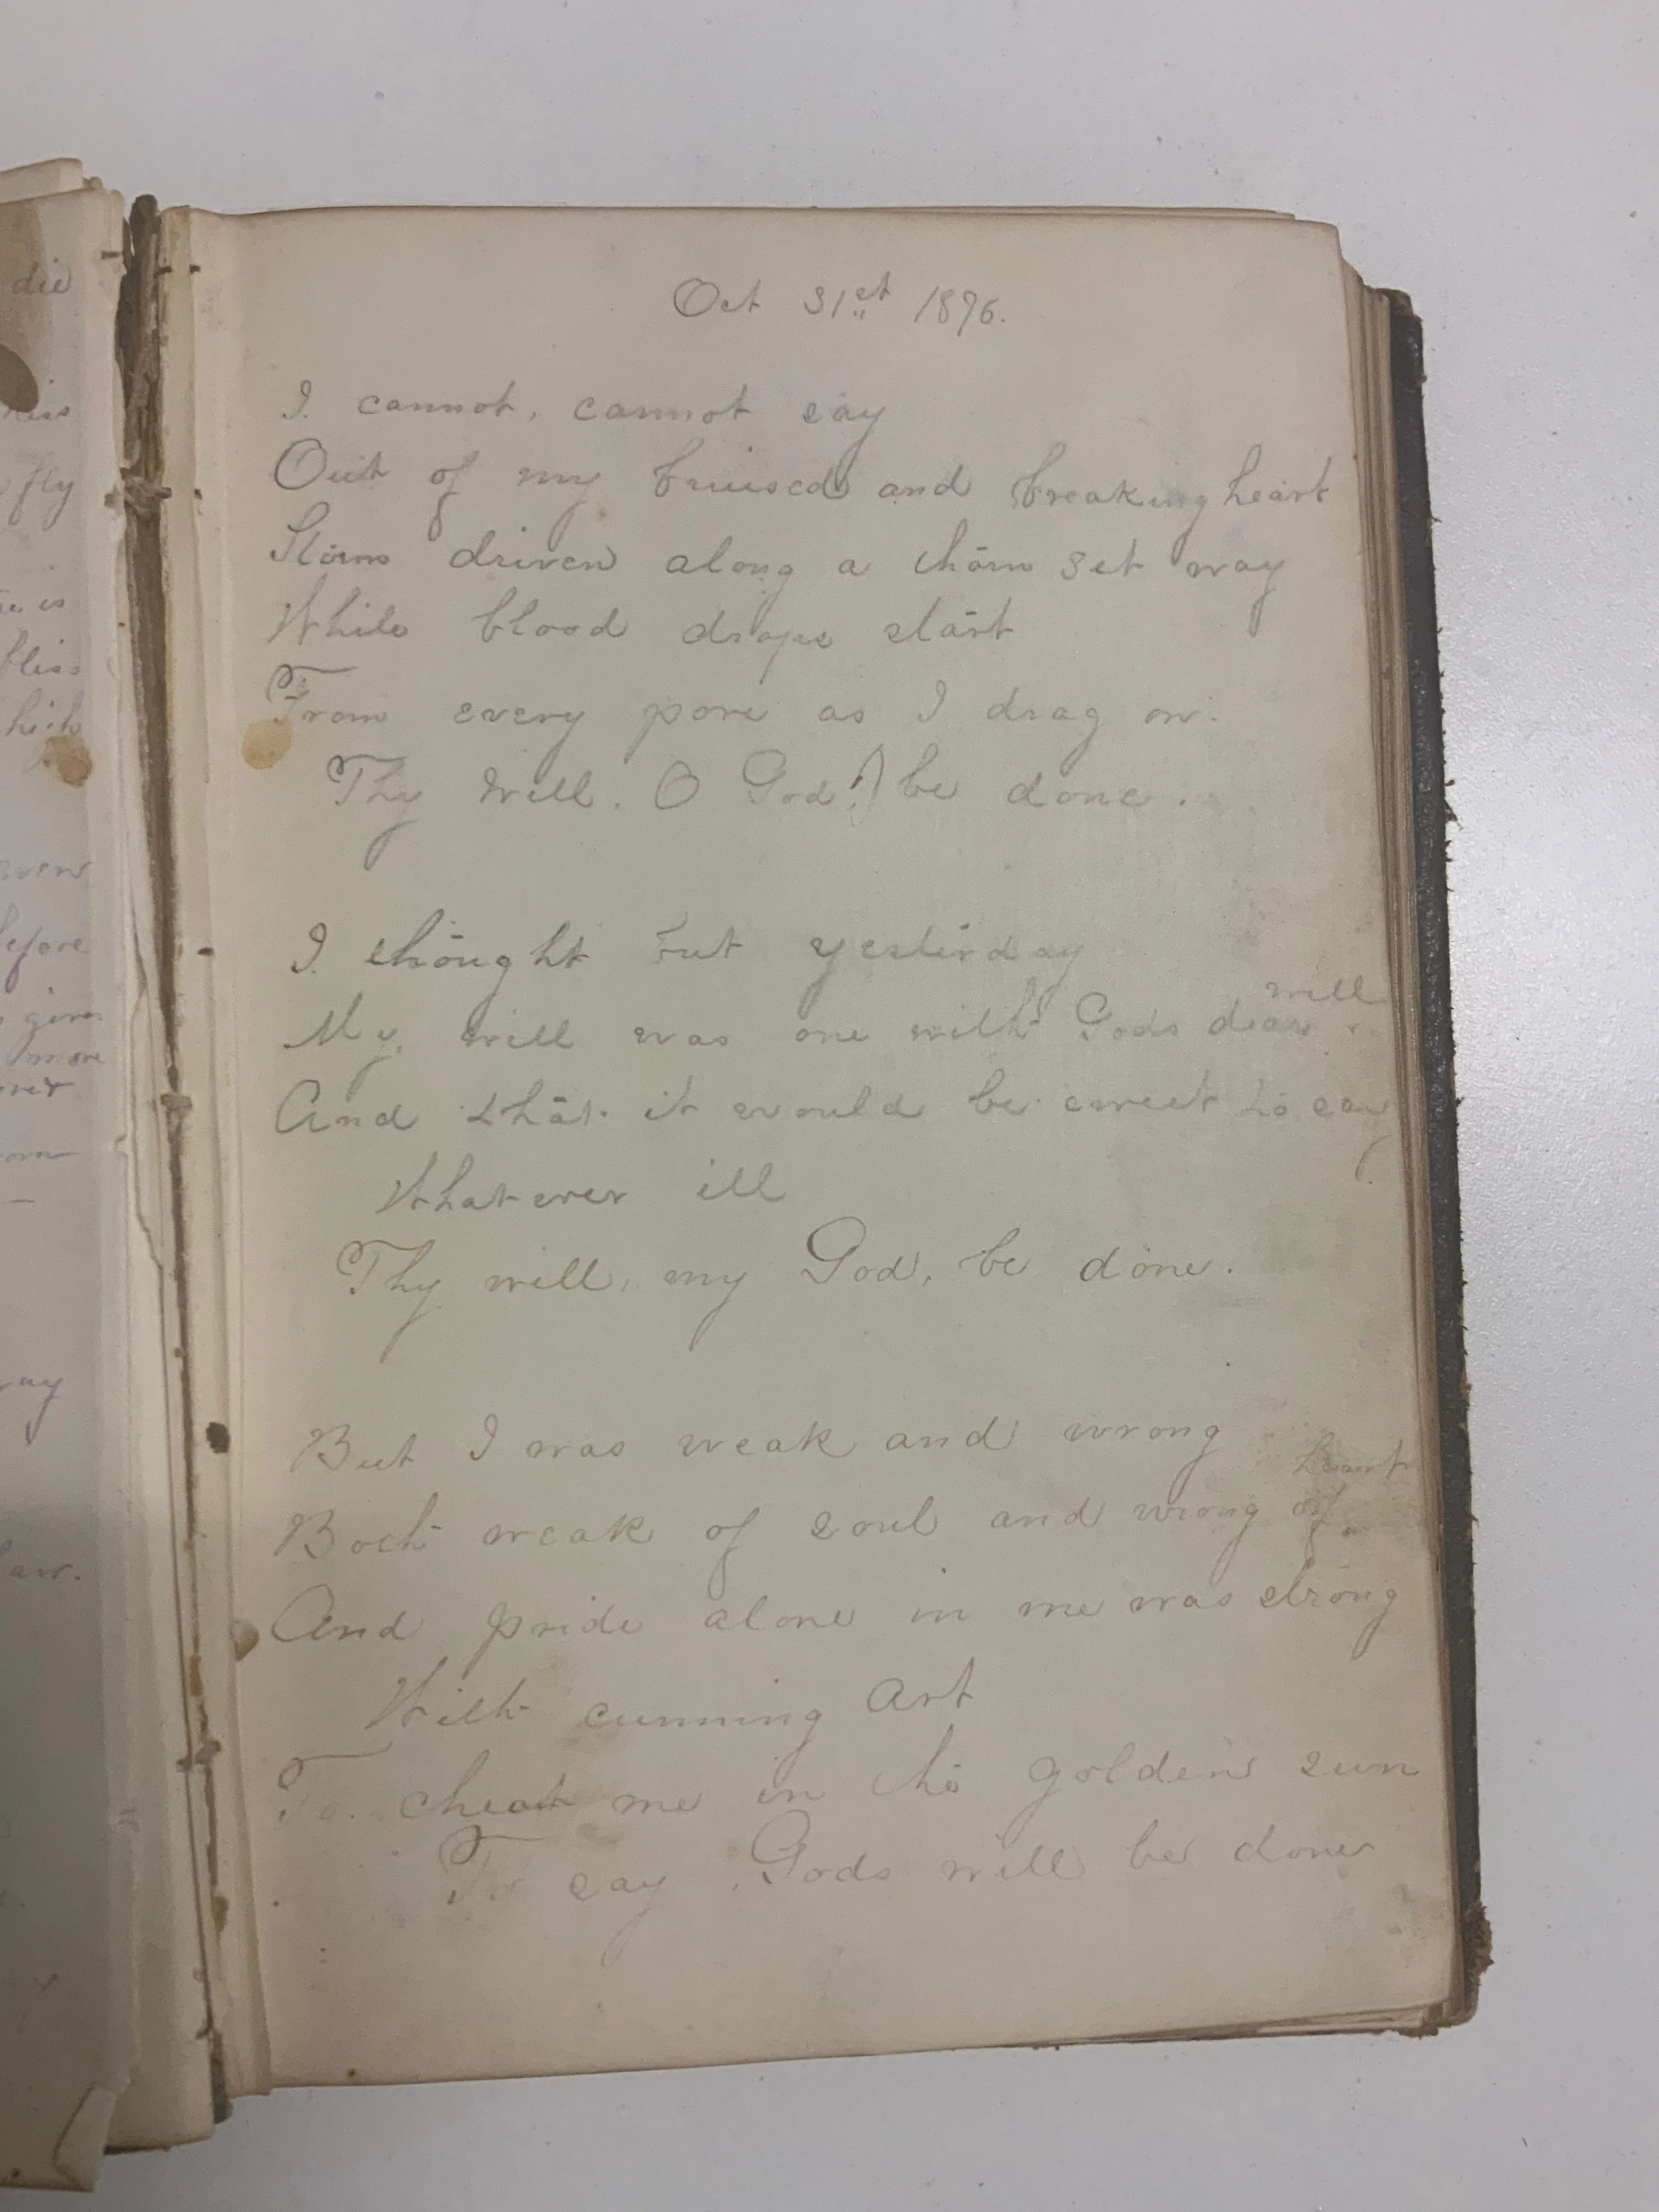 die
kiss
fly
is
bliss
hich
aven
before
given
more
over
om
ay
aw.
Oct 31st 1896.
I. cannot, cannot say
Out of my bruised and breaking heart
Storm driven along a thorn set way
While blood drops start
From every pore as I drag on.
Thy will, O God! be done.
I. thought but yesterday
My will was one with Gods dear will.
And that it would be sweet to say
Whatever ill
Thy will, my God, be done.
But I was weak and wrong
Both weak of soul and wrong of heart
And pride alone in me was strong
With cunning Art
To cheat me in the golden sun
To say Gods will be done